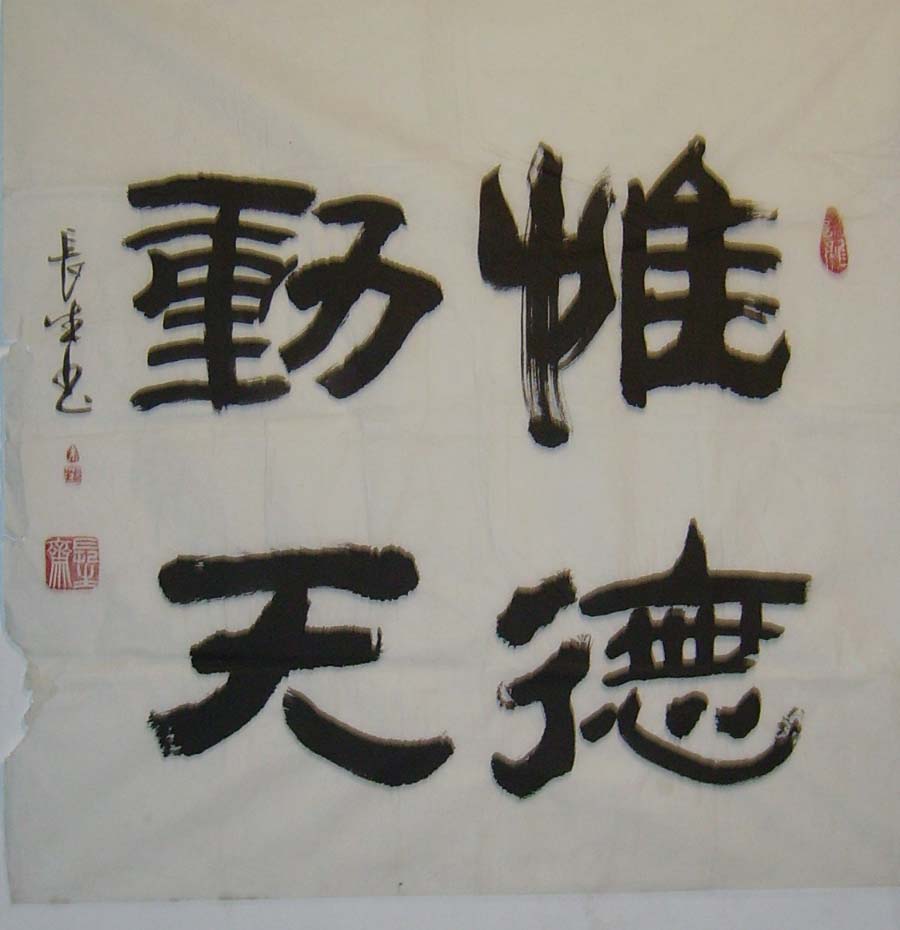 惟德
動天
長生书